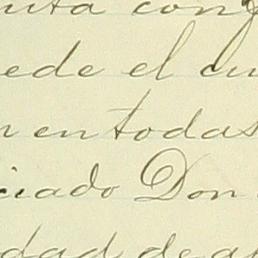 con
ede el cu
n en todas
ciado Don
dad de